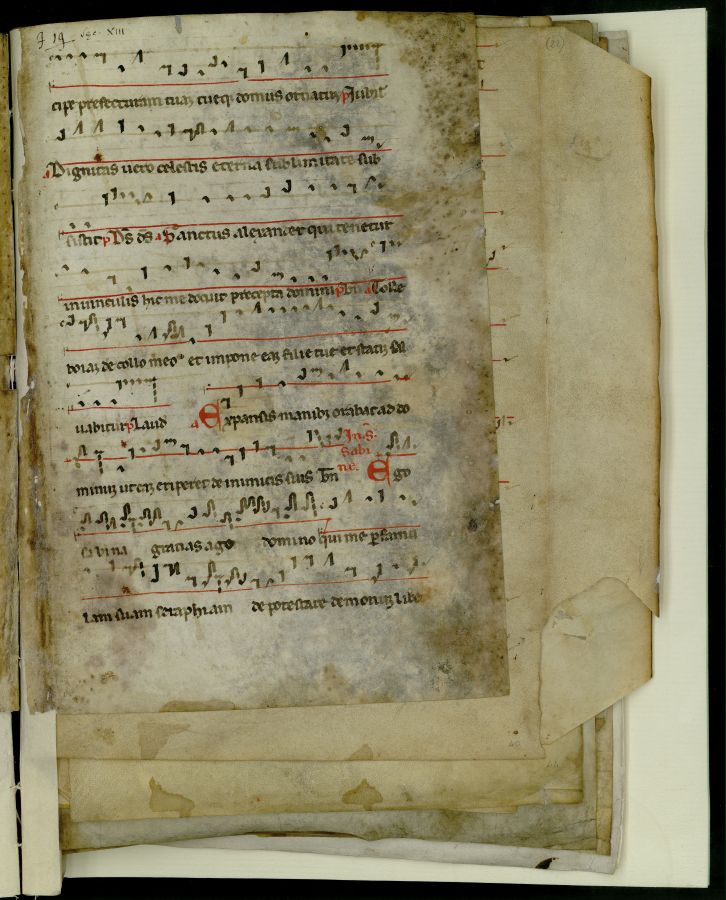 g 19 sec. XIII
cipe prefecturam tuam tueq; domus ornatum p Jubil
Dignitas vero celestis eterna sublimitate sub
sistit p Ds ds Sanctus alexander qui tenetur
in vinculis hic me docuit precepta domini p Tolle
boias de collo meo et impone eas filie tue et statim sal
vabitur p Laud Expansis manib; orabat ad do
minum ut cum eriperet de inimicis suis Bn In S. Sabi ne. Ego
savina gracias ago domino qui me per famu
lam suam seraphiam de potestate demonum libe